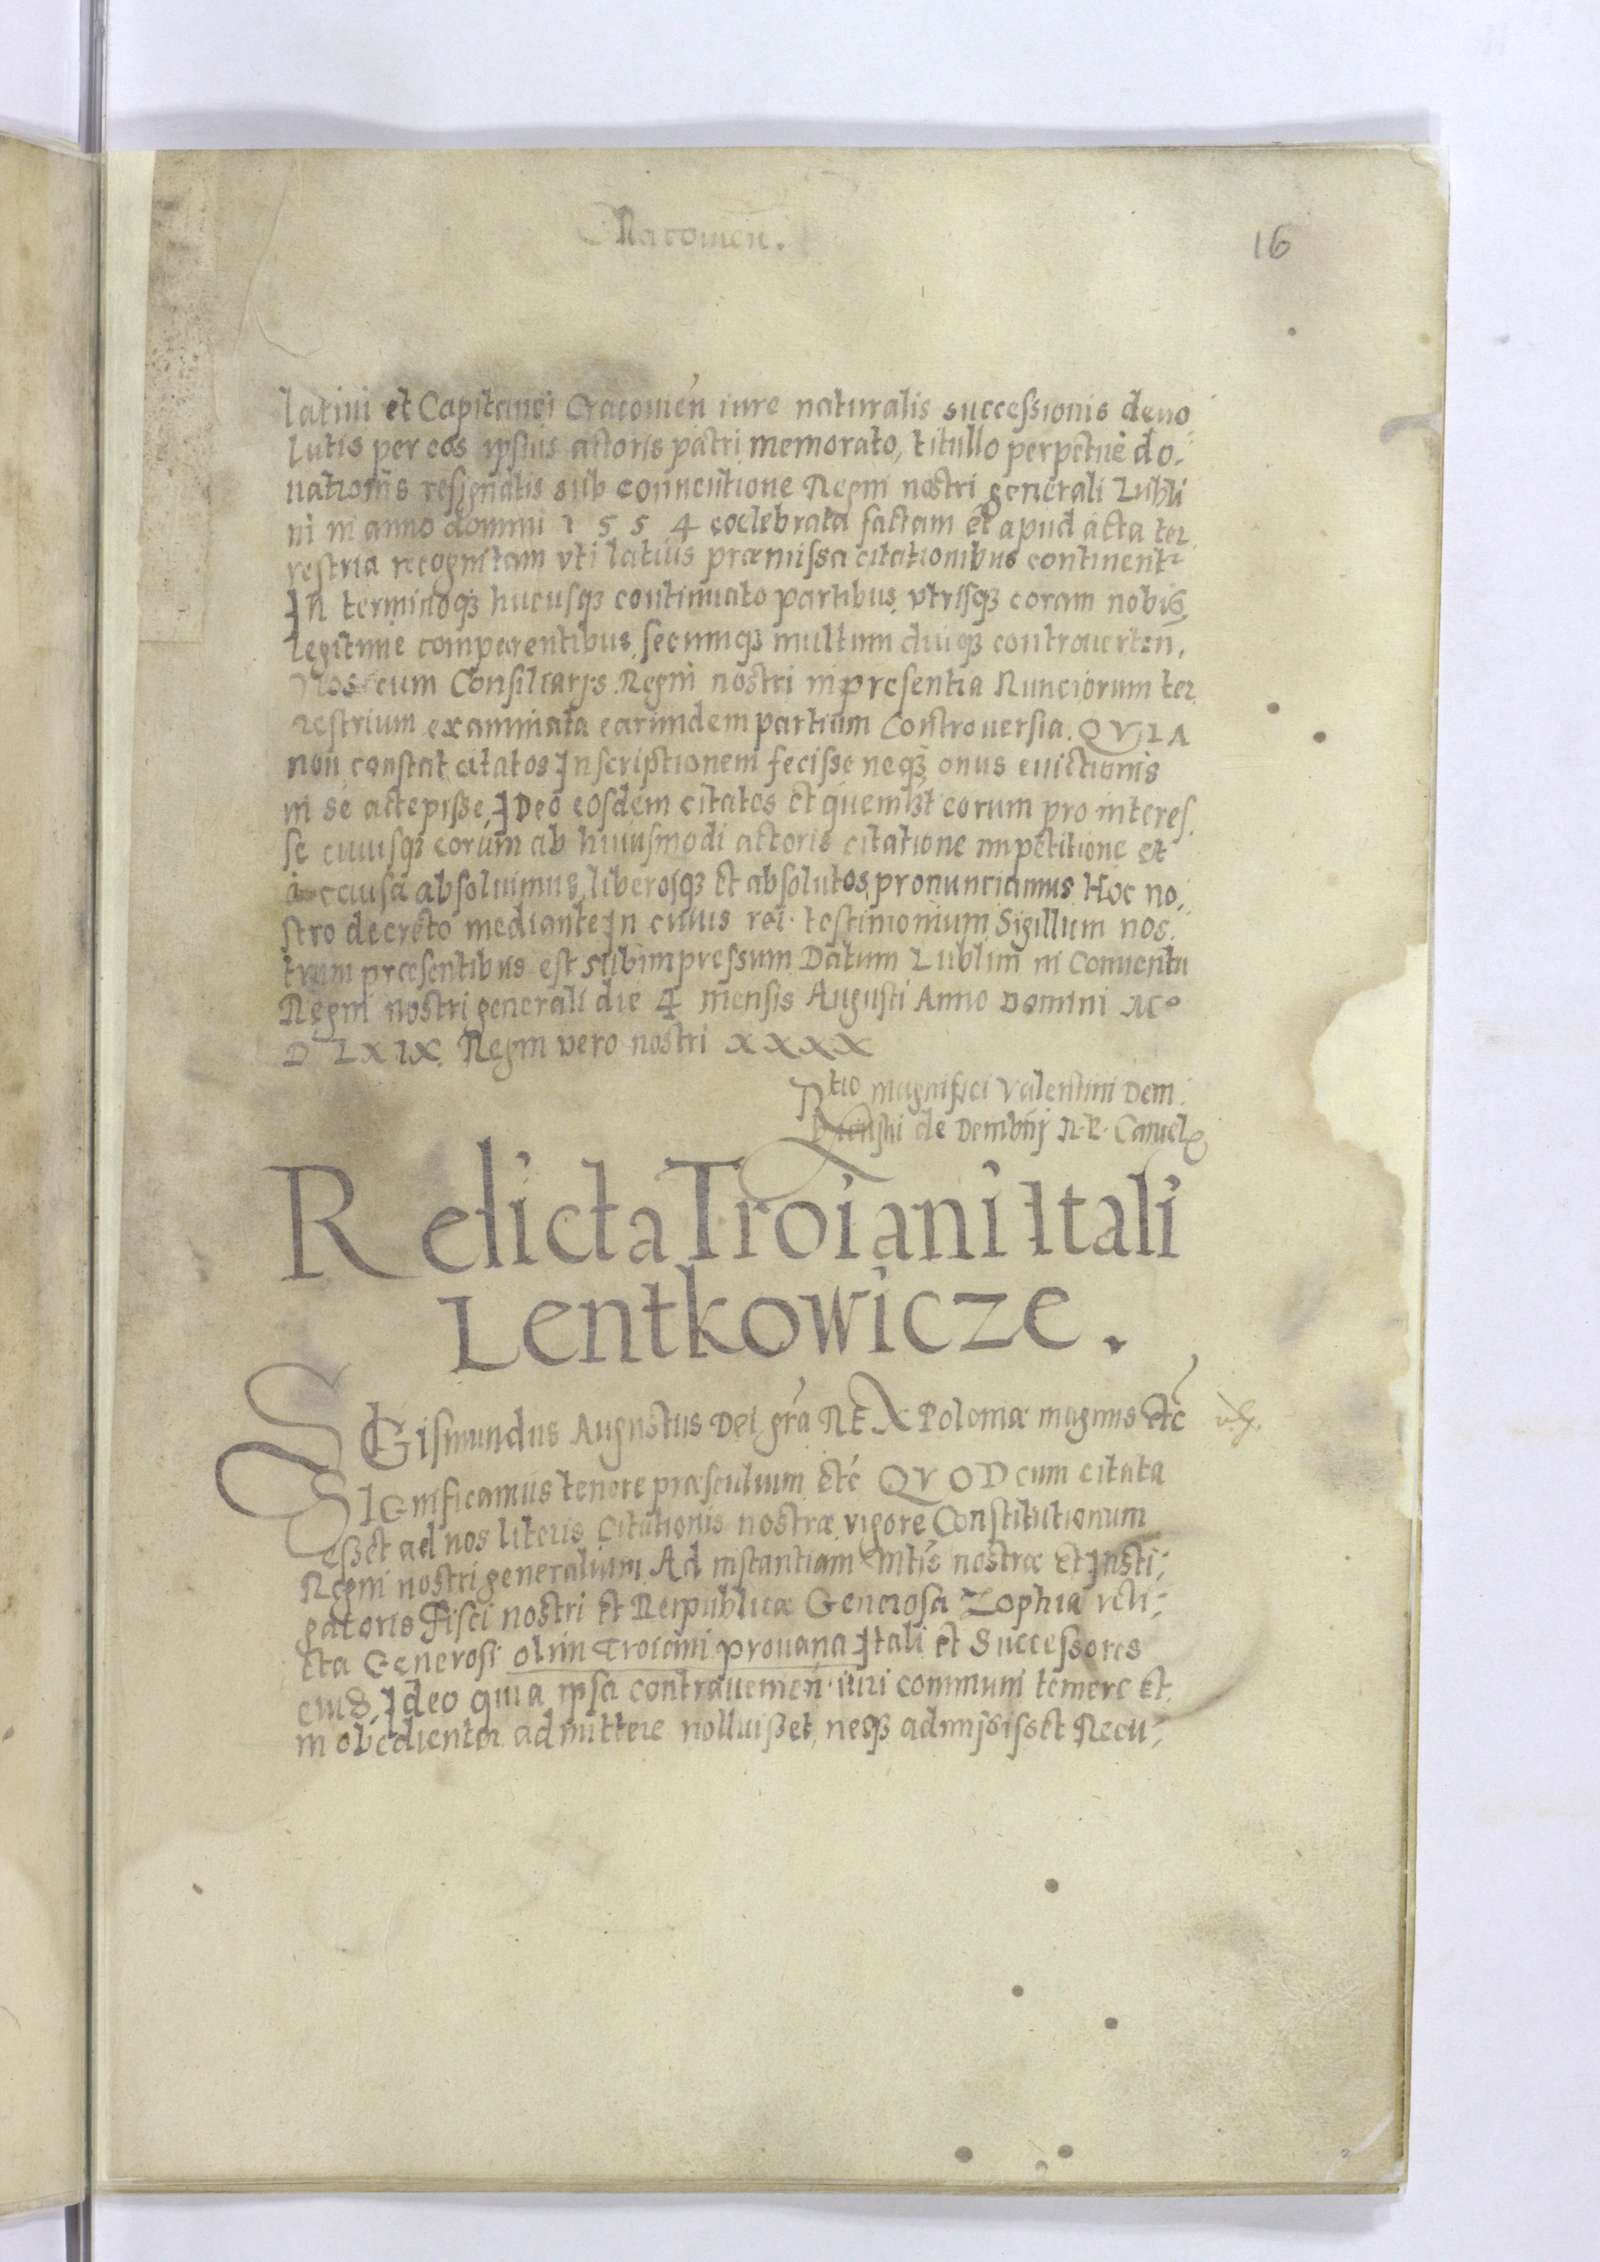 Cracouien.
16
latini et Capitanei Cracouien iure naturalis successionis deuo
lutis per eos ipsius actoris patri memorato, titullo perpetue do„
nationis resignatis sub conuentione Regni nostri generali Lubli
ni in anno domini 1 5 5 4 coelebrata factam et apud acta ter
restria recognitam vti latius præmissa citationibus continentr
In terminoqꝫ hucusqꝫ continuato partibus vtrisqꝫ coram nobis
legitime comparentibus secumqꝫ multum diuqꝫ controuerten,
Nos cum Consiliarijs Regni nostri in presentia Nunciorum ter
restrium examinata earundem partium Controuersia. QVIA
non constat citatos Inscriptionem fecisse neqꝫ onus euictionis
in se accepisse, IDeo eosdem citatos et quemlibet eorum pro interes„
se cuiusqꝫ eorum ab huiusmodi actoris citatione impetitione et
à causa absoluimus, liberosqꝫ et absolutos pronunciamus Hoc no„
stro decreto mediante In cuius rei testimonium Sigillum nos„
trum præsentibus est subimpressum Datum Lublini in Conuentu
Regni nostri generali die 4 mensis Augusti Anno Domini Mo
D LXIX Regni vero nostri XXXX
Rtio magnifici Valentini Dem„
bienski de Dembnij R. P. Cancel
Relicta Troiani Itali
Lentkowicze.
SIGismundus Augustus Dei gra REX Poloniæ magnus Etc
SIGnificamus tenore præsentium Etc QVOD cum citata
esset ad nos literis Citationis nostræ vigore Constitutionum
Regni nostri generalium Ad instantiam Mtis nostræ Et Insti„
gatoris Fisci nostri et Reipublicæ Generosa Zophia reli„
cta Generosi olim Troiani prouana Itali et Successores
eius, Ideo quia ipsa contrauenien iuri communi temere Et
inobedienter admittere nolluisset, neqꝫ admisisset Recu„